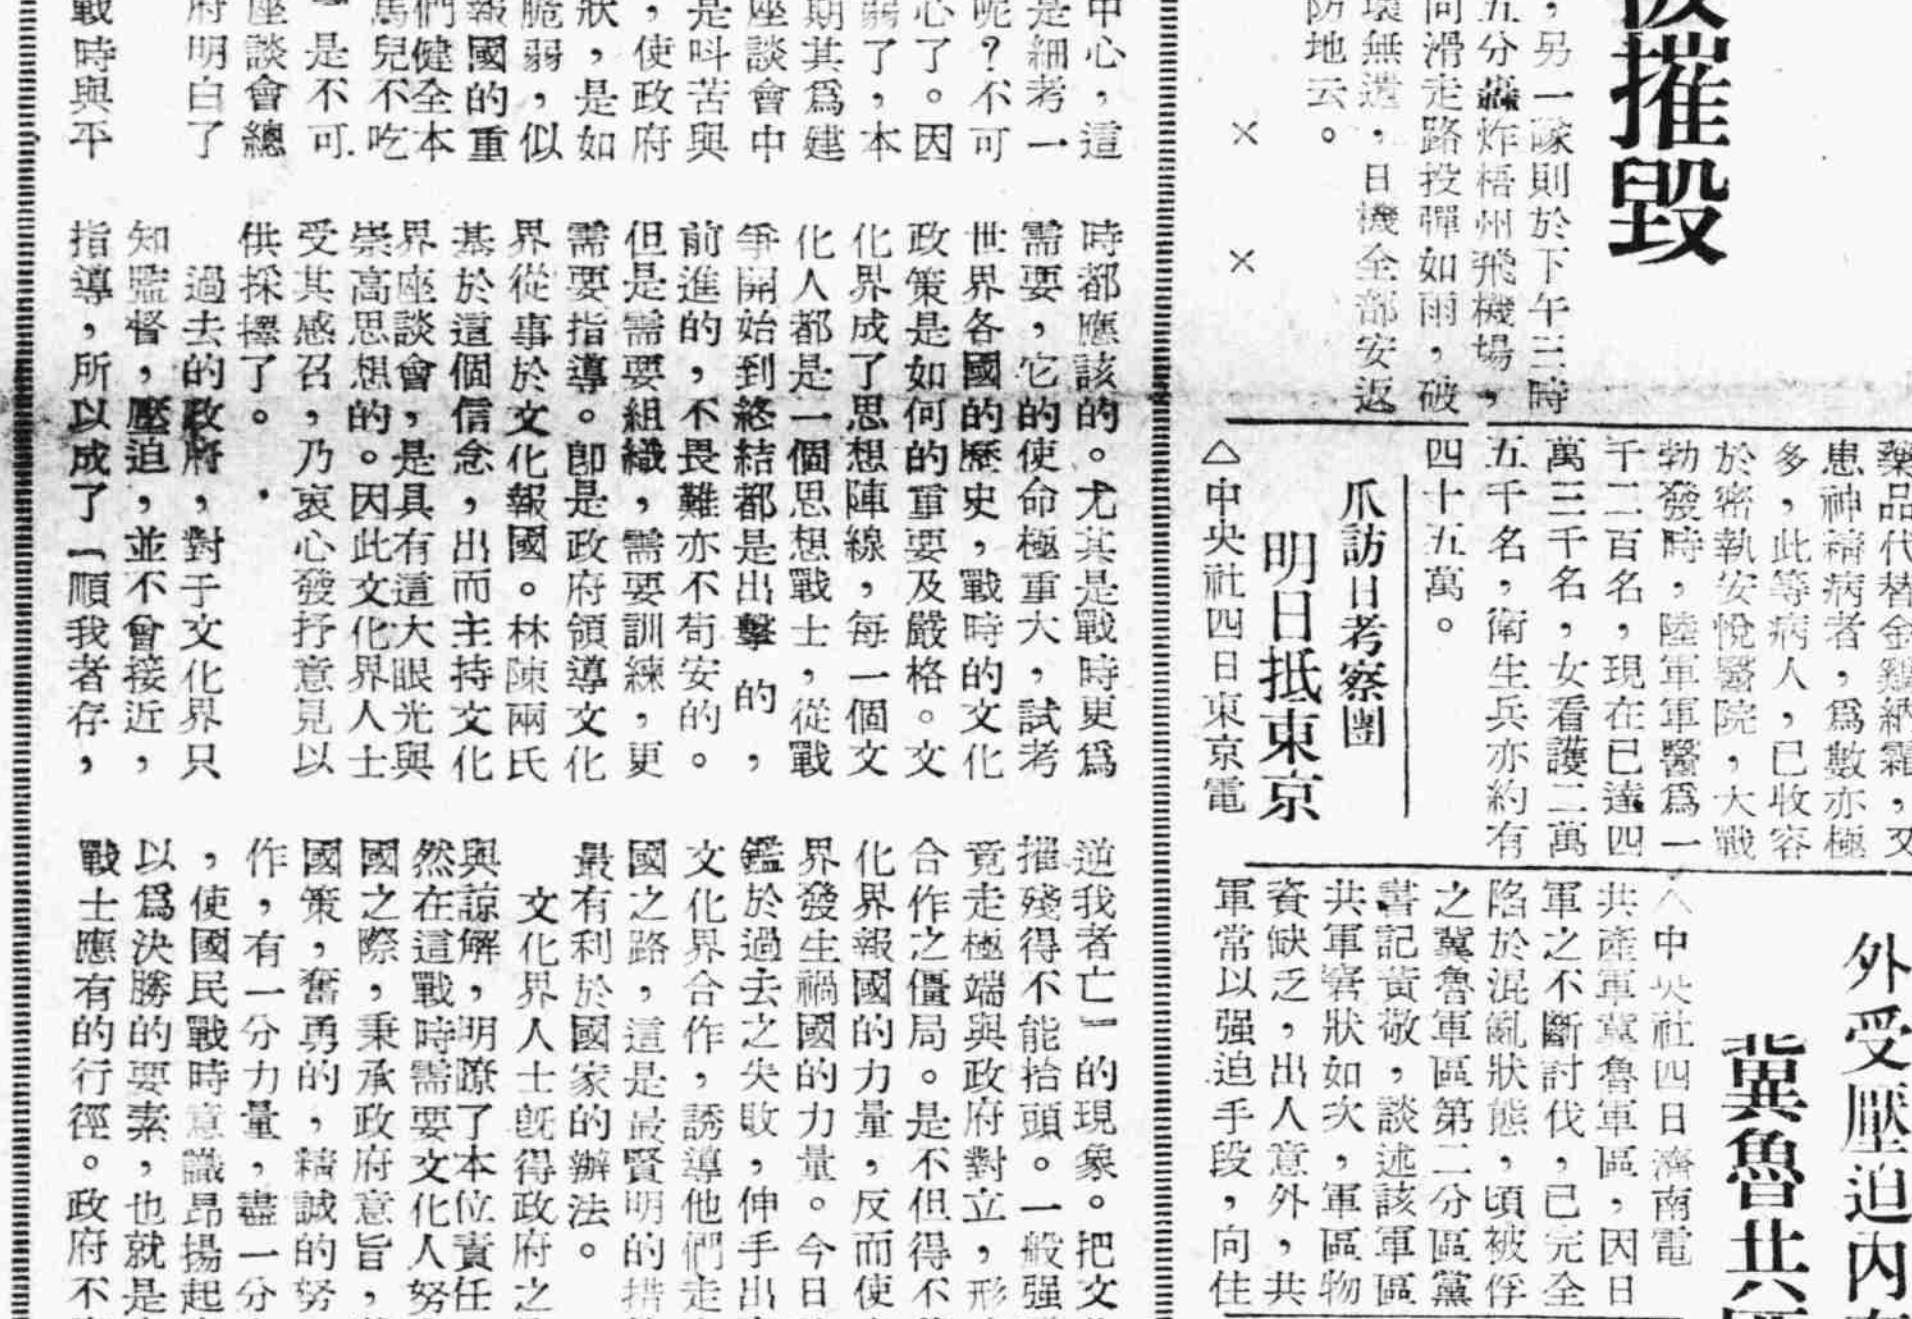 摧毀
，另一隊則於下午三時
五分轟炸梧州飛機場，
向滑走路投彈如雨，破
壞無遺，日機全部安返
防地云。
× ×
藥品代替金鷄納霜，又
患神經病者，爲數亦極
多，此等病人，已收容
於密執安悅醫院，大戰
勃發時，陸軍軍醫爲一
千二百名，現在已達四
萬三千名，女看護二萬
五千名，衛生兵亦約有
四十五萬。
爪訪日考察團
明日抵東京
△中央社四日東京電
外受壓迫內
冀魯共
△中央社四日濟南電
共產軍冀魯軍區，因日
軍之不斷討伐，已完全
陷於混亂狀態，頃被俘
之冀魯軍區第二分區黨
書記黃敬，談述該軍區
共軍窘狀如次，軍區物
資缺乏，出人意外，共
軍常以强迫手段，向住
中心，這
是細考一
呢？不可
心了。因
弱了，本
期其爲建
座談會中
是呌苦與
，使政府
狀，是如
脆弱，似
報國的重
們健全本
馬兒不吃
「是不可
座談會總
府明白了
戰時與平
時都應該的。尤其是戰時更爲
需要，它的使命極重大，試考
世界各國的歷史，戰時的文化
政策是如何的重要及嚴格。文
化界成了思想陣線，每一個文
化人都是一個思想戰士，從戰
爭開始到終結都是出擊的，
前進的，不畏難亦不苟安的。
但是需要組織，需要訓練，更
需要指導。卽是政府領導文化
界從事於文化報國。林陳兩氏
基於這個信念，出而主持文化
界座談會，是具有這大眼光與
崇高思想的。因此文化界人士
受其感召，乃衷心發抒意見以
供採擇了。
過去的政府，對于文化界只
知監督，壓迫，並不會接近，
指導，所以成了「順我者存，
逆我者亡」的現象。把文
摧殘得不能抬頭。一般强
竟走極端與政府對立，形
合作之僵局。是不但得不
化界報國的力量，反而使
界發生禍國的力量。今日
鑑於過去之失敗，伸手出
文化界合作，誘導他們走
國之路，這是最賢明的措
最有利於國家的辦法。
文化界人士旣得政府之
與諒解，明瞭了本位責任
然在這戰時需要文化人努
國之際，秉承政府意旨，
國策，奮勇的，精誠的努
作，有一分力量，盡一分
，使國民戰時意識昂揚起
以爲決勝的要素，也就是
戰士應有的行徑。政府不